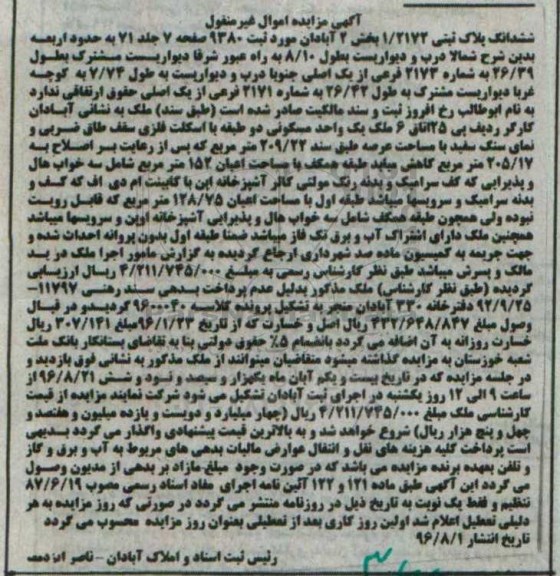 آگهی مزایده اموال غیرمنقول
ششدانگ پلاک ثبتی ۱/۲۱۷۲ بخش ۲ آبادان مورد ثبت ۹۳۸۰ صفحه ۷ جلد ۷۱ به حدود اربعه
بدین شرح شمالا درب و دیواریست بطول ۸/۱۰ به راه عبور شرقا دیواریست مشترک بطول
۲۶/۳۹ به شماره ۲۱۷۳ فرعی از یک اصلی جنوبا درب و دیواریست به طول ۷/۷۴ به کوچه
غربا دیواریست مشترک به طول ۲۶/۴۲ به شماره ۲۱۷۱ فرعی از یک اصلی حقوق ارتفاقی ندارد
به نام ابوطالب رخ افروز ثبت و سند مالکیت صادر شده است (طبق سند) ملک به نشانی آبادان
کارگر ردیف بی ۲۵اتاق ۶ ملک یک واحد مسکونی دو طبقه با اسکلت فلزی سقف طاق ضربی و
نمای سنگ سفید با مساحت عرصه طبق سند ۲۰۹/۲۲ متر مربع که پس از رعایت بر اصلاح به
۲۰۵/۱۷ متر مربع کاهش میابد طبقه همکف با مساحت اعیان ۱۵۲ متر مربع شامل سه خواب هال
و پذیرایی که کف سرامیک و بدنه رنگ مولتی کالر آشپزخانه اپن با کابینت ام دی اف که کف و
بدنه سرامیک و سرویسها میباشد طبقه اول با مساحت اعیان ۱۲۸/۷۵ متر مربع که قابل رویت
نبوده ولی همچون طبقه همکف شامل سه خواب هال و پذیرایی آشپزخانه اوپن و سرویسها میباشد
همچنین ملک دارای اشتراک آب و برق تک فاز میباشد ضمنا طبقه اول بدون پروانه احداث شده و
جهت جریمه به کمیسیون ماده صد شهرداری ارجاع گردیده به گزارش مامور اجرا ملک در ید
مالک و پسرش میباشد طبق نظر کارشناس رسمی به مبلغ ۴/۲۱۱/۷۴۵/۰۰۰ ریال ارزیابی
گردیده (طبق نظر کارشناس) ملک مذکور بدلیل عدم پرداخت بدهی سند رهنی ۱۱۷۹۷-
۹۲/۹/۲۵ دفترخانه ۳۳۰ آبادان منجر به تشکیل پرونده کلاسه ۹۶۰۰۰۴۰ گردیدو در قبال
وصول مبلغ ۴۳۲/۶۴۸/۸۴۷ ریال اصل و خسارت که از تاریخ ۹۶/۱/۲۳ مبلغ ۳۰۷/۱۴۱ ریال
خسارت روزانه به آن اضافه می گردد بانضمام ۵٪ حقوق دولتی بنا به تقاضای بستانکار بانک ملت
شعبه خوزستان به مزایده گذاشته میشود متقاضیان میتوانند از ملک مذکور به نشانی فوق بازدید و
در جلسه مزایده که در تاریخ بیست و یکم آبان ماه یکهزار و سیصد و نود و شش ۹۶/۸/۲۱ از
ساعت ۹ الی ۱۲ روز یکشنبه در اجرای ثبت آبادان تشکیل می شود شرکت نمایند مزایده از قیمت
کارشناسی ملک مبلغ ۴/۲۱۱/۷۴۵/۰۰۰ ریال (چهار میلیارد و دویست و یازده میلیون و هفتصد و
چهل و پنج هزار ریال) شروع خواهد شد و به بالاترین قیمت پیشنهادی واگذار می گردد بدیهی
است پرداخت کلیه هزینه های نقل و انتقال عوارض مالیات بدهی های مربوط به آب و برق و گاز
و تلفن بعهده برنده مزایده می باشد که در صورت وجود مبلغ مازاد بر بدهی از مدیون وصول
می گردد این آگهی طبق ماده ۱۲۱ و ۱۲۲ آئین نامه اجرای مفاد اسناد رسمی مصوب ۸۷/۶/۱۹
تنظیم و فقط یک نوبت به تاریخ ذیل در روزنامه منتشر می گردد در صورتی که روز مزایده به هر
دلیلی تعطیل اعلام شد اولین روز کاری بعد از تعطیلی بعنوان روز مزایده محسوب می گردد
تاریخ انتشار ۹۶/۸/۱
رئیس ثبت اسناد و املاک آبادان - ناصر ایزدمهد